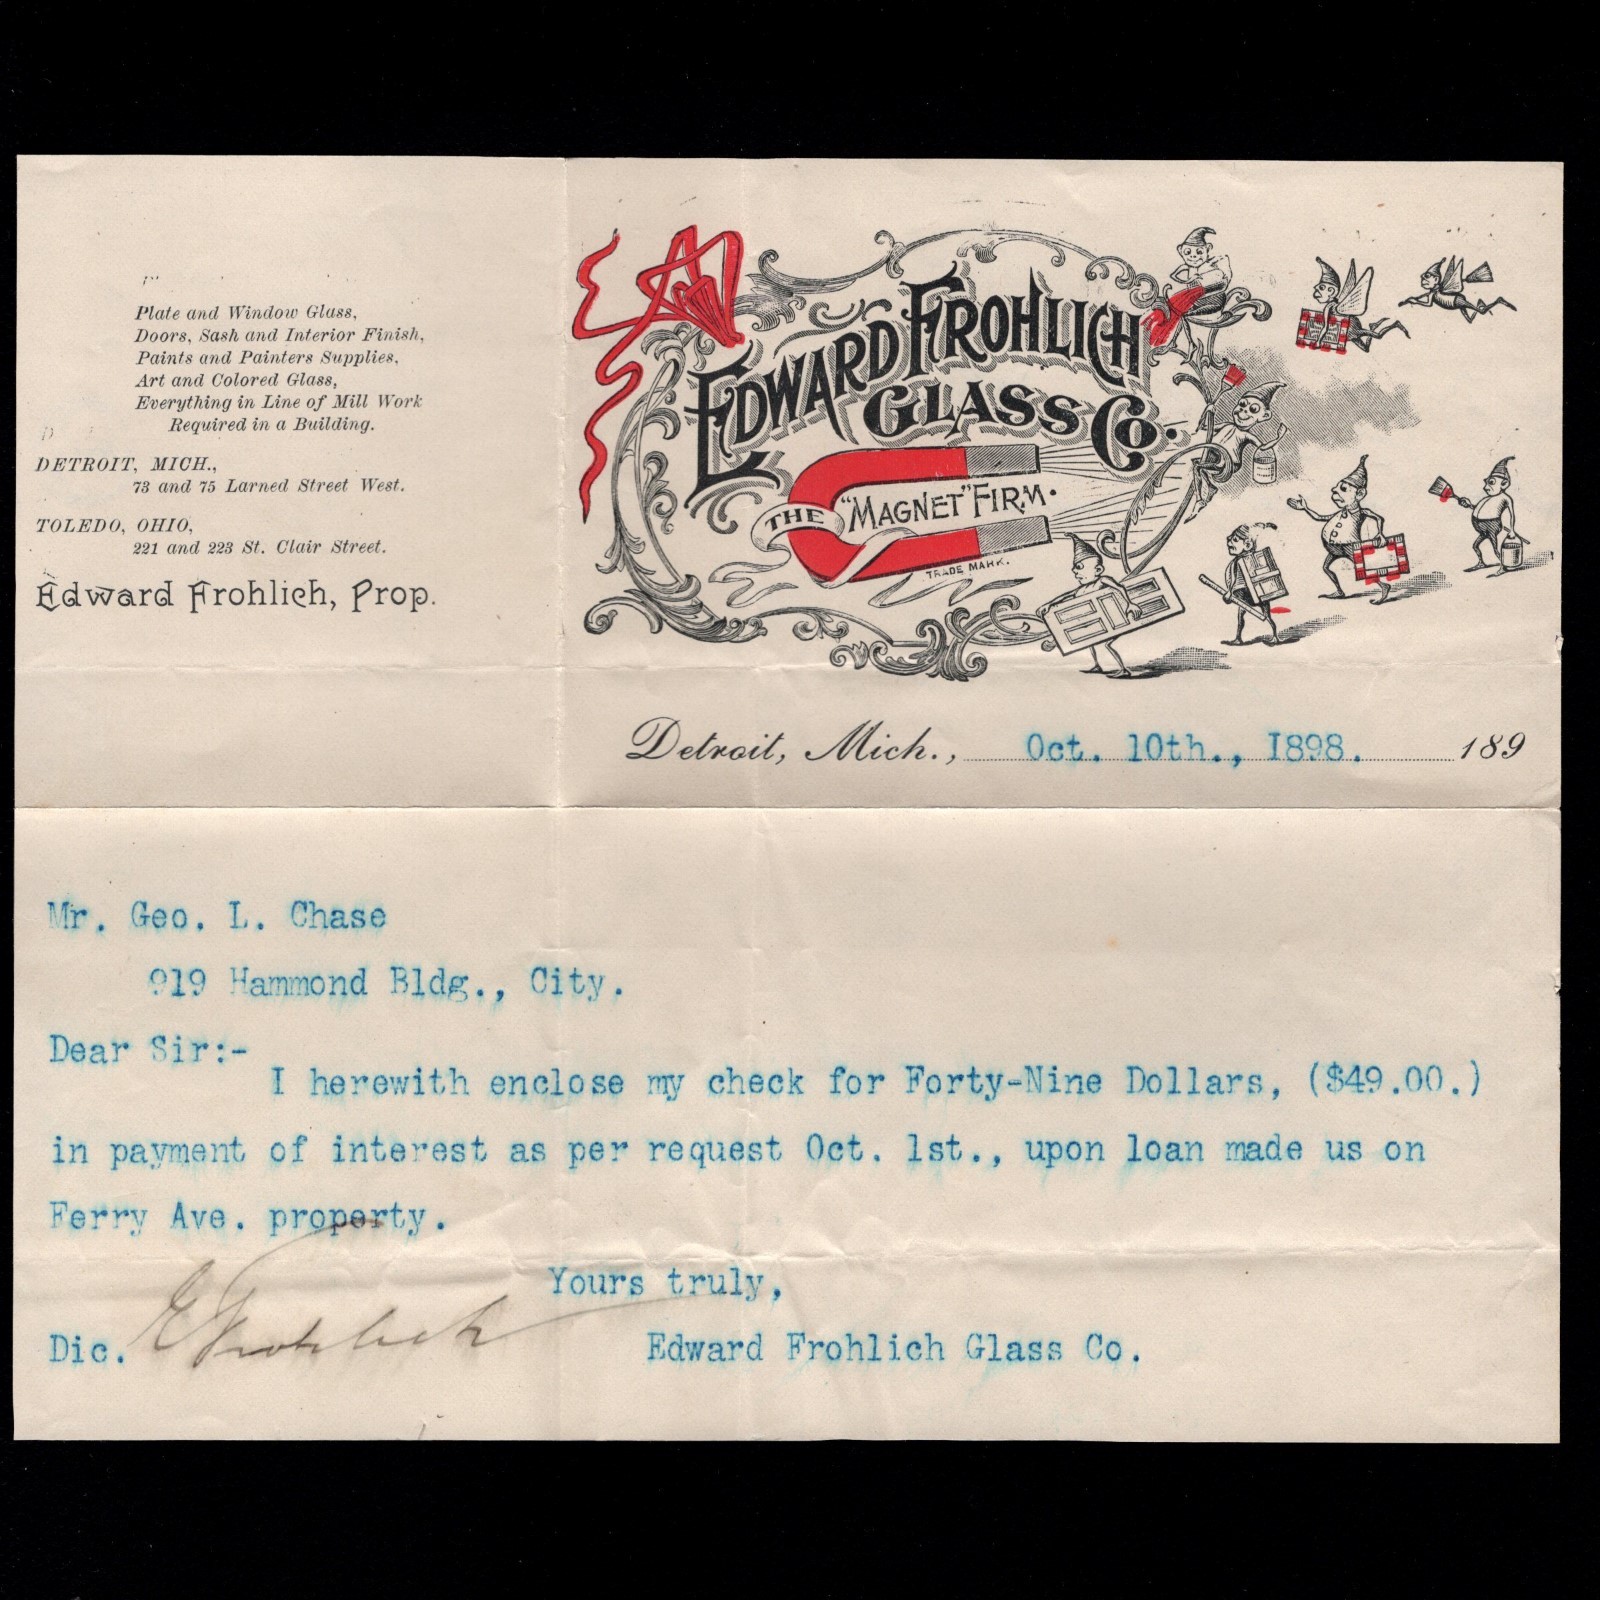 Plate and Window Glass,
Doors, Sash and Interior Finish,
Paints and Painters Supplies,
Art and Colored Glass,
Everything in Line of Mill Work
Required in a Building.
DETROIT, MICH.,
73 and 75 Larned Street West.
TOLEDO, OHIO,
221 and 223 St. Clair Street.
Edward Frohlich, Prop.
EDWARD FROHLICH
GLASS CO.
THE "MAGNET" FIRM.
TRADE MARK.
Detroit, Mich., Oct. 10th., 1898. 189
Mr. Geo. L. Chase
919 Hammond Bldg., City.
Dear Sir:-
I herewith enclose my check for Forty-Nine Dollars, ($49.00.)
in payment of interest as per request Oct. 1st., upon loan made us on
Ferry Ave. property.
Yours truly,
Dic. E Frohlich Edward Frohlich Glass Co.